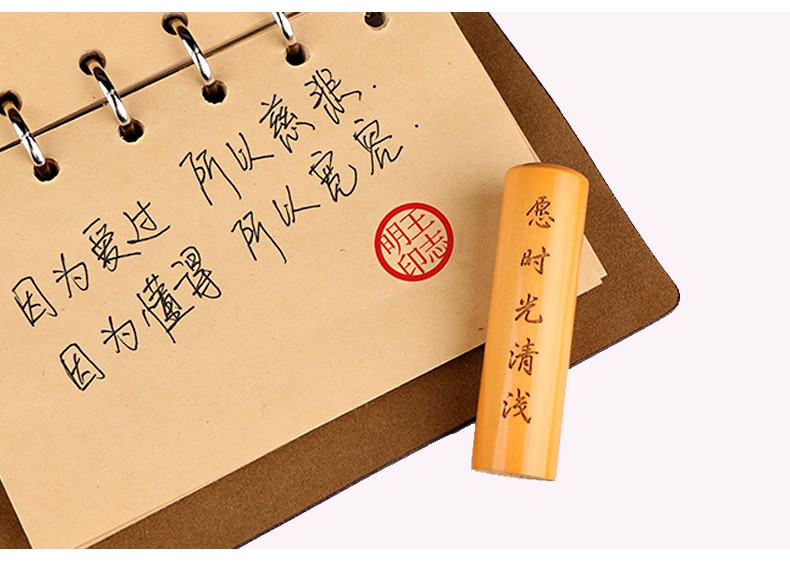 因为爱过 所以慈悲.
因为懂得 所以宽容.
王志
明印
愿时光清浅